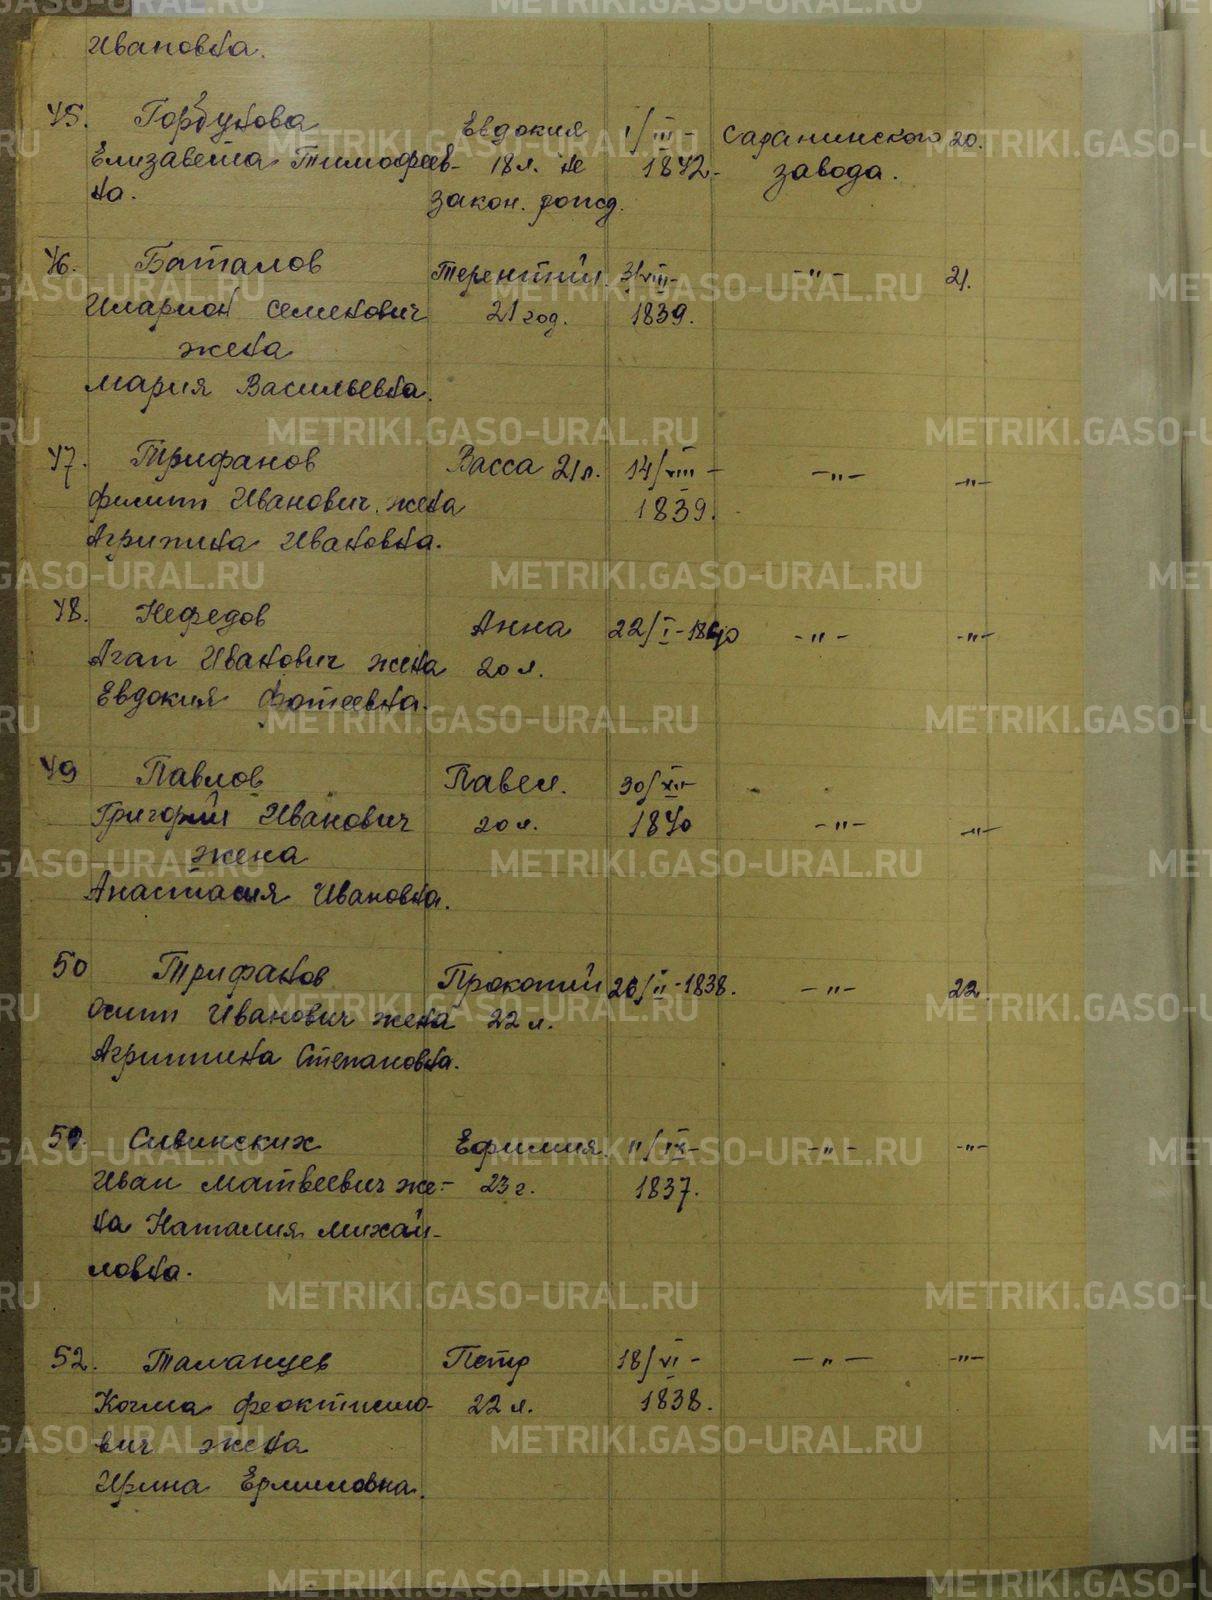 Ивановна.
45. Горбунова Евдокия 1/III- Саранинского 20.
Елизавета Тимофеев- 18 л. не 1842. завода.
на. закон. рожд.
46. Баталов Терентий. 31/VIII- -"- 21.
Иларион Семенович 21 год. 1839.
жена
Мария Васильевна.
47. Трифанов Васса 21 л. 14/VIII- -"- -"-
Филипп Иванович. жена 1839.
Агрипина Ивановна.
48. Нефедов Анна 22/I-1840 -"- -"-
Агап Иванович жена 20 л.
Евдокия Фотеевна.
49 Павлов Павел. 30/XII-
Григорий Иванович 20 л. 1840 -"- -"-
жена
Анастасия Ивановна.
50 Трифанов Прокопий 26/II-1838. -"- 22.
Осип Иванович жена 22 л.
Агриппина Степановна.
51. Сивинских Ефимия. 11/IX- -"- -"-
Иван Матвеевич же- 23 г. 1837.
на Наталия Михай-
ловна.
52. Таланцев Петр 18/VI- -"- -"-
Козма Феоктисто- 22 л. 1838.
вич жена
Ирина Ермиловна.
METRIKI.GASO-URAL.RU